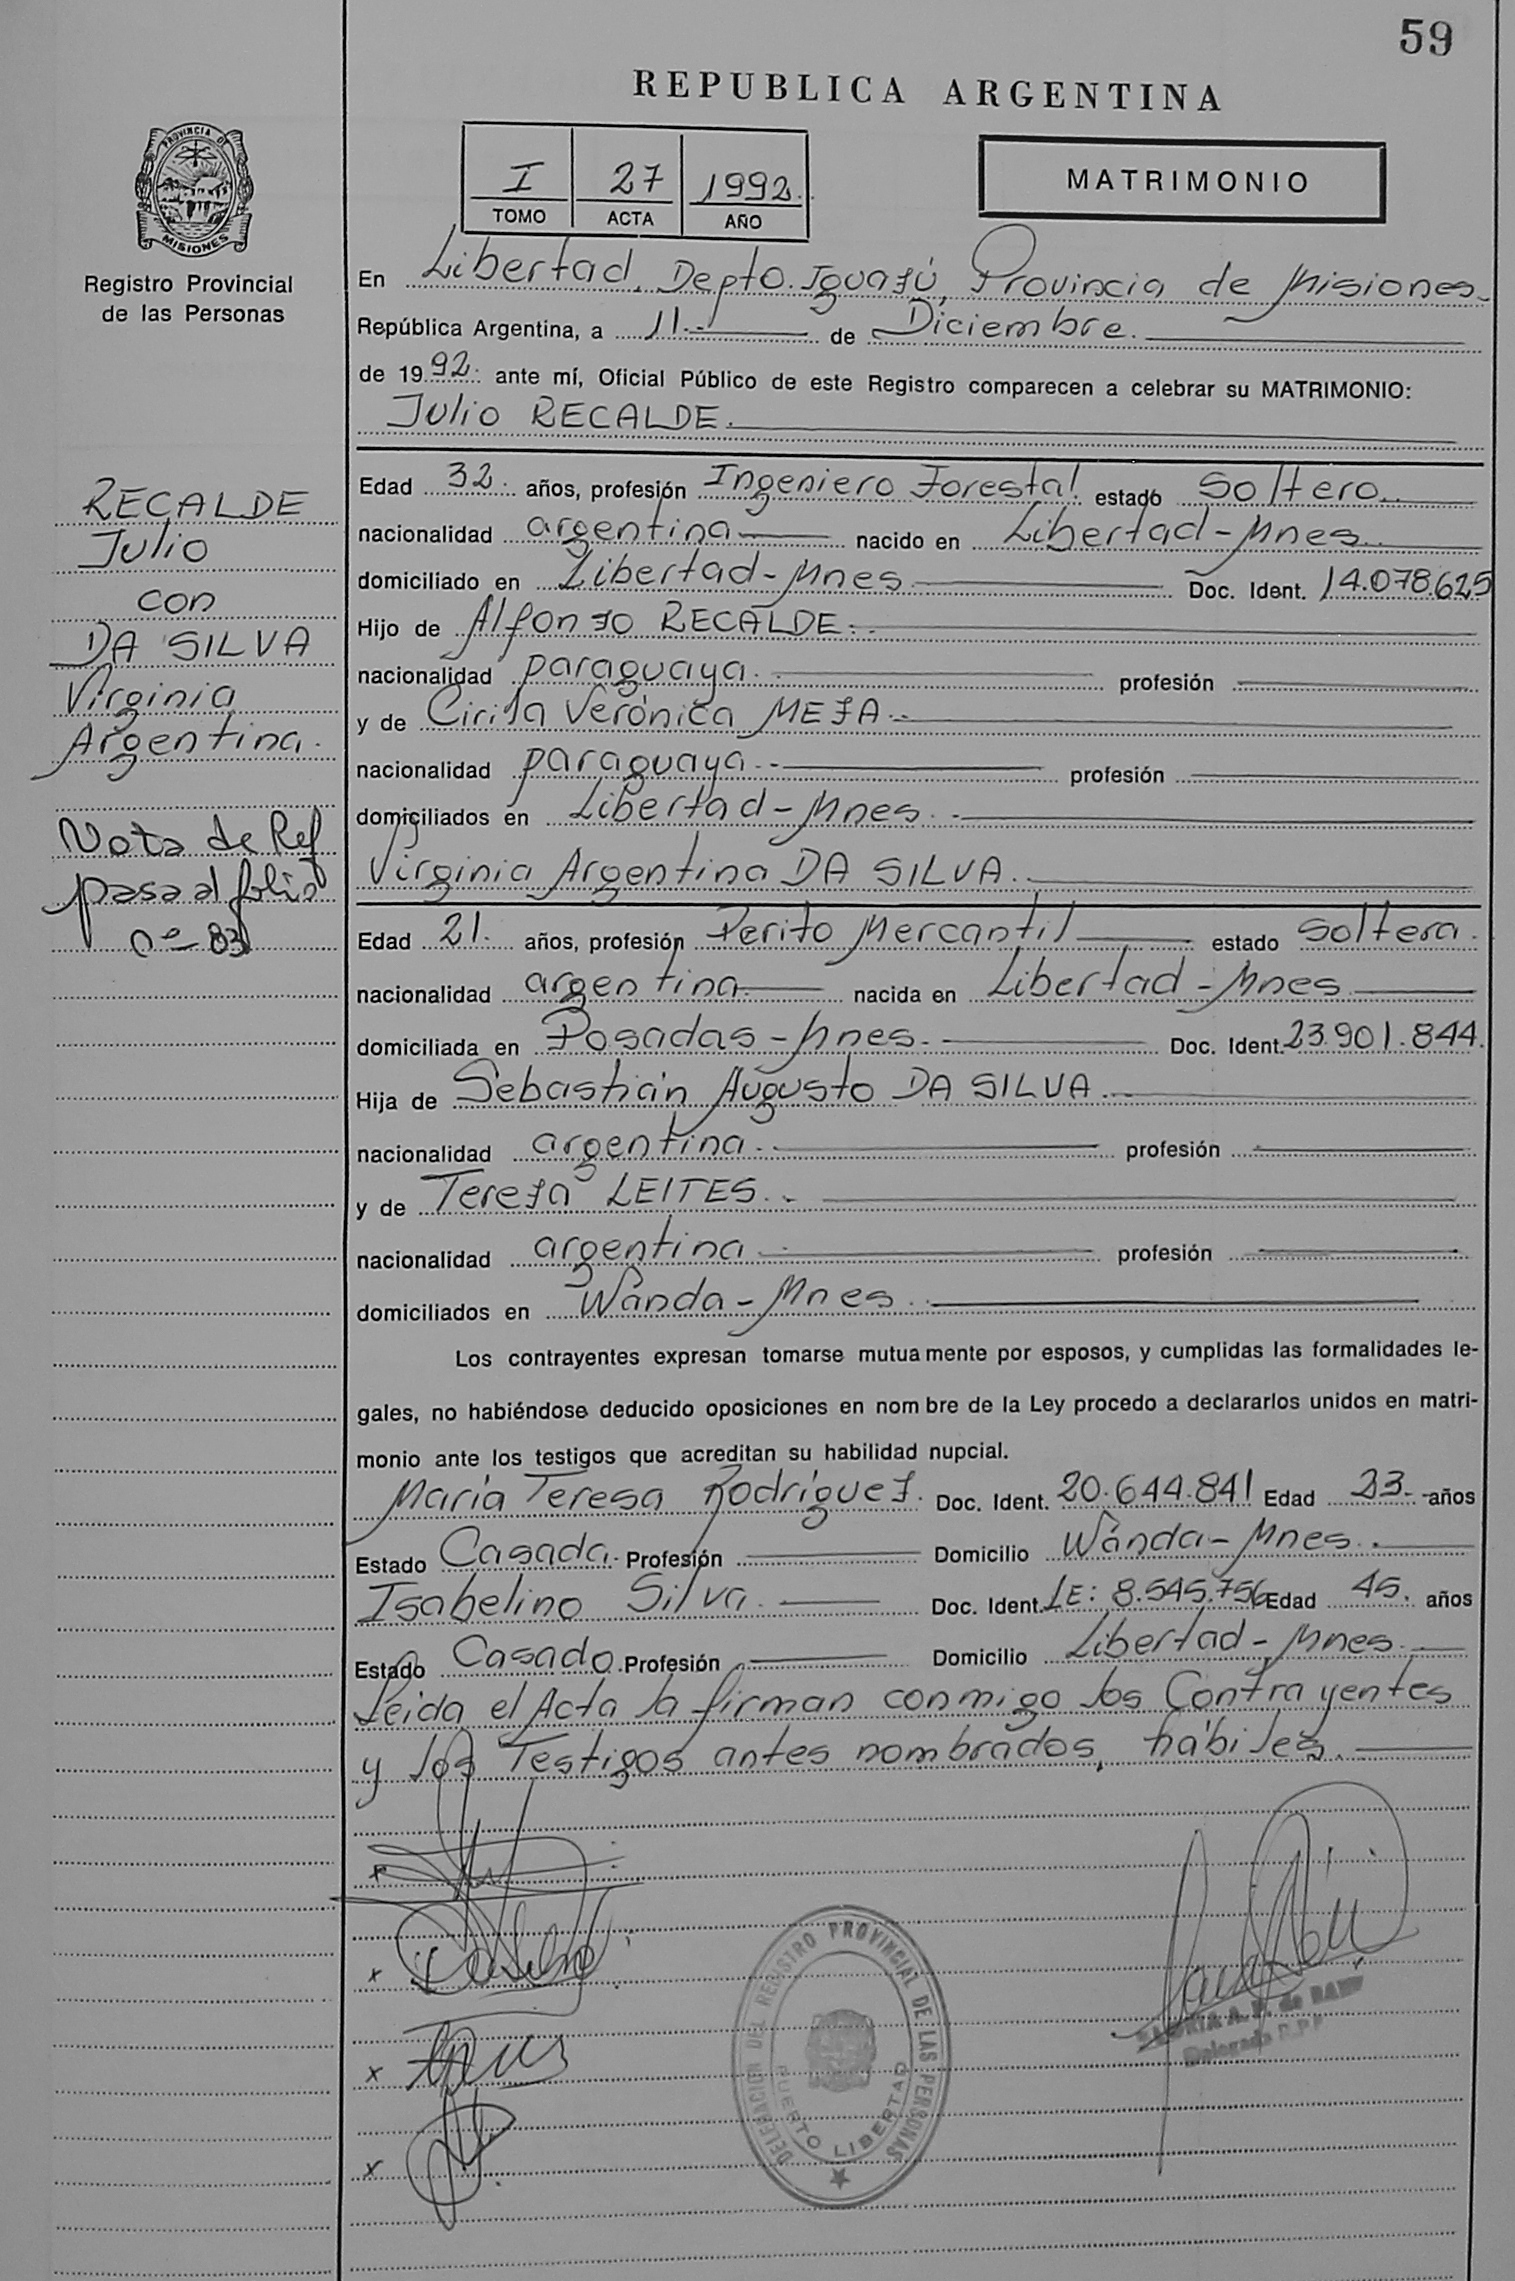 59
REPUBLICA ARGENTINA
PROVINCIA DE
MISIONES
Registro Provincial
de las Personas
I 27 1992.
TOMO ACTA AÑO
MATRIMONIO
En Libertad, Depto. Iguazú, Provincia de Misiones.
República Argentina, a 11. de Diciembre.
de 1992. ante mí, Oficial Público de este Registro comparecen a celebrar su MATRIMONIO:
Julio RECALDE.
RECALDE
Julio
con
DA SILVA
Virginia
Argentina.
Nota de Ref
pasa al folio
nº 83
Edad 32. años, profesión Ingeniero Forestal. estado Soltero.
nacionalidad argentina nacido en Libertad-Mnes.
domiciliado en Libertad-Mnes. Doc. Ident. 14.078.625
Hijo de Alfonzo RECALDE.
nacionalidad paraguaya. profesión
y de Cirila Verónica MEZA.
nacionalidad paraguaya. profesión
domiciliados en Libertad-Mnes.
Virginia Argentina DA SILVA.
Edad 21. años, profesión Perito Mercantil estado Soltera.
nacionalidad argentina. nacida en Libertad-Mnes
domiciliada en Posadas-Mnes. Doc. Ident. 23.901.844.
Hija de Sebastián Augusto DA SILVA.
nacionalidad argentina. profesión
y de Tereza LEITES.
nacionalidad argentina profesión
domiciliados en Wanda-Mnes.
Los contrayentes expresan tomarse mutuamente por esposos, y cumplidas las formalidades le-
gales, no habiéndose deducido oposiciones en nombre de la Ley procedo a declararlos unidos en matri-
monio ante los testigos que acreditan su habilidad nupcial.
María Teresa Rodríguez. Doc. Ident. 20.644.841 Edad 23. años
Estado Casada. Profesión Domicilio Wanda-Mnes.
Isabelino Silva. Doc. Ident. LE: 8.545.756 Edad 45. años
Estado Casado. Profesión Domicilio Libertad-Mnes.
Leida el Acta la firman conmigo los Contrayentes
y los Testigos antes nombrados, hábiles.
x
x
x
x
DELEGACION DEL REGISTRO PROVINCIAL DE LAS PERSONAS
PUERTO LIBERTAD
Delegada R.P.P.